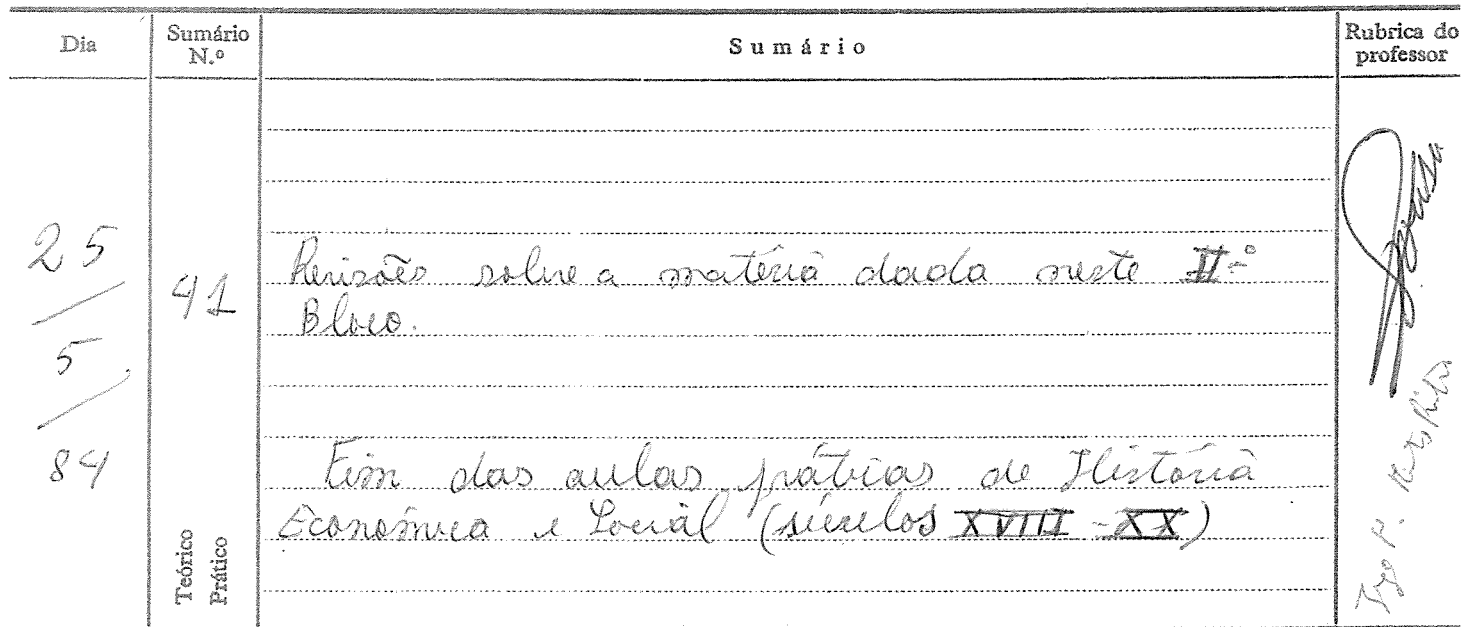 Dia
Sumário N.º
Sumário
Rubrica do professor
25
/
5
/
84
41
Teórico
Prático
Revisões sobre a matéria dada neste II.º
Bloco.
Fim das aulas práticas de História
Económica e Social (séculos XVIII-XX)